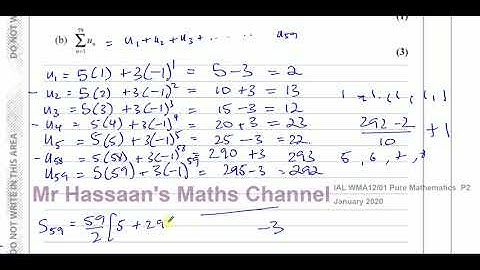 (1)
(b) \sum_{n=1}^{59} u_n = u_1 + u_2 + u_3 + ........ u_59
(3)
u_1 = 5(1) + 3(-1)^1 = 5 - 3 = 2
- u_2 = 5(2) + 3(-1)^2 = 10 + 3 = 13
u_3 = 5(3) + 3(-1)^3 = 15 - 3 = 12
- u_4 = 5(4) + 3(-1)^4 = 20 + 3 = 23
u_5 = 5(5) + 3(-1)^5 = 25 - 3 = 22
- u_58 = 5(58) + 3(-1)^58 = 290 + 3 293
u_59 = 5(59) + 3(-1)^59 = 295 - 3 = 292
292 - 2 / 10 + 1
5, 6, 7, 8
Mr Hassaan's Maths Channel
IAL WMA12/01 Pure Mathematics P2
January 2020
S_59 = 59/2 [5 + 29
-3
DO NOT WRITE IN THIS AREA
DO NOT